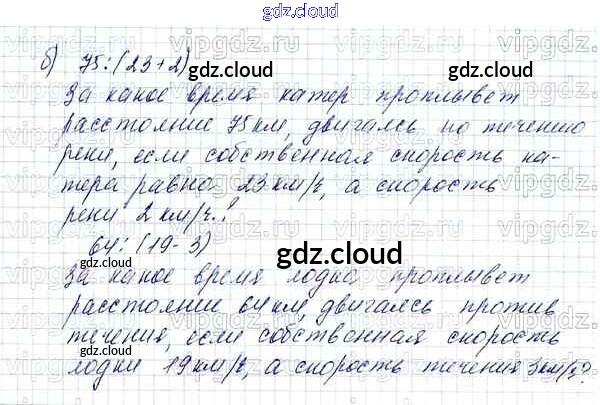 gdz.cloud
б) 75:(23+2)
За какое время катер проплывет
расстояние 75 км, двигаясь по течению
реки, если собственная скорость ка-
тера равна 23 км/ч, а скорость
реки 2 км/ч.?
64:(19-3)
За какое время лодка проплывет
расстоянии 64 км, двигаясь против
течения, если собственная скорость
лодки 19 км/ч, а скорость течения 3 км/ч?
gdz.cloud
gdz.cloud
gdz.cloud
gdz.cloud
gdz.cloud
gdz.cloud
vipgdz.ru